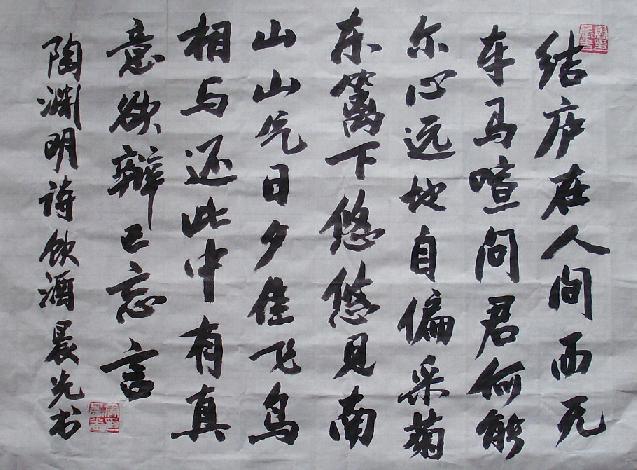 结庐在人间而无
车马喧问君何能
尔心远地自偏采菊
东篱下悠悠见南
山山气日夕佳飞鸟
相与还此中有真
意欲辩已忘言
陶渊明诗饮酒晨光书